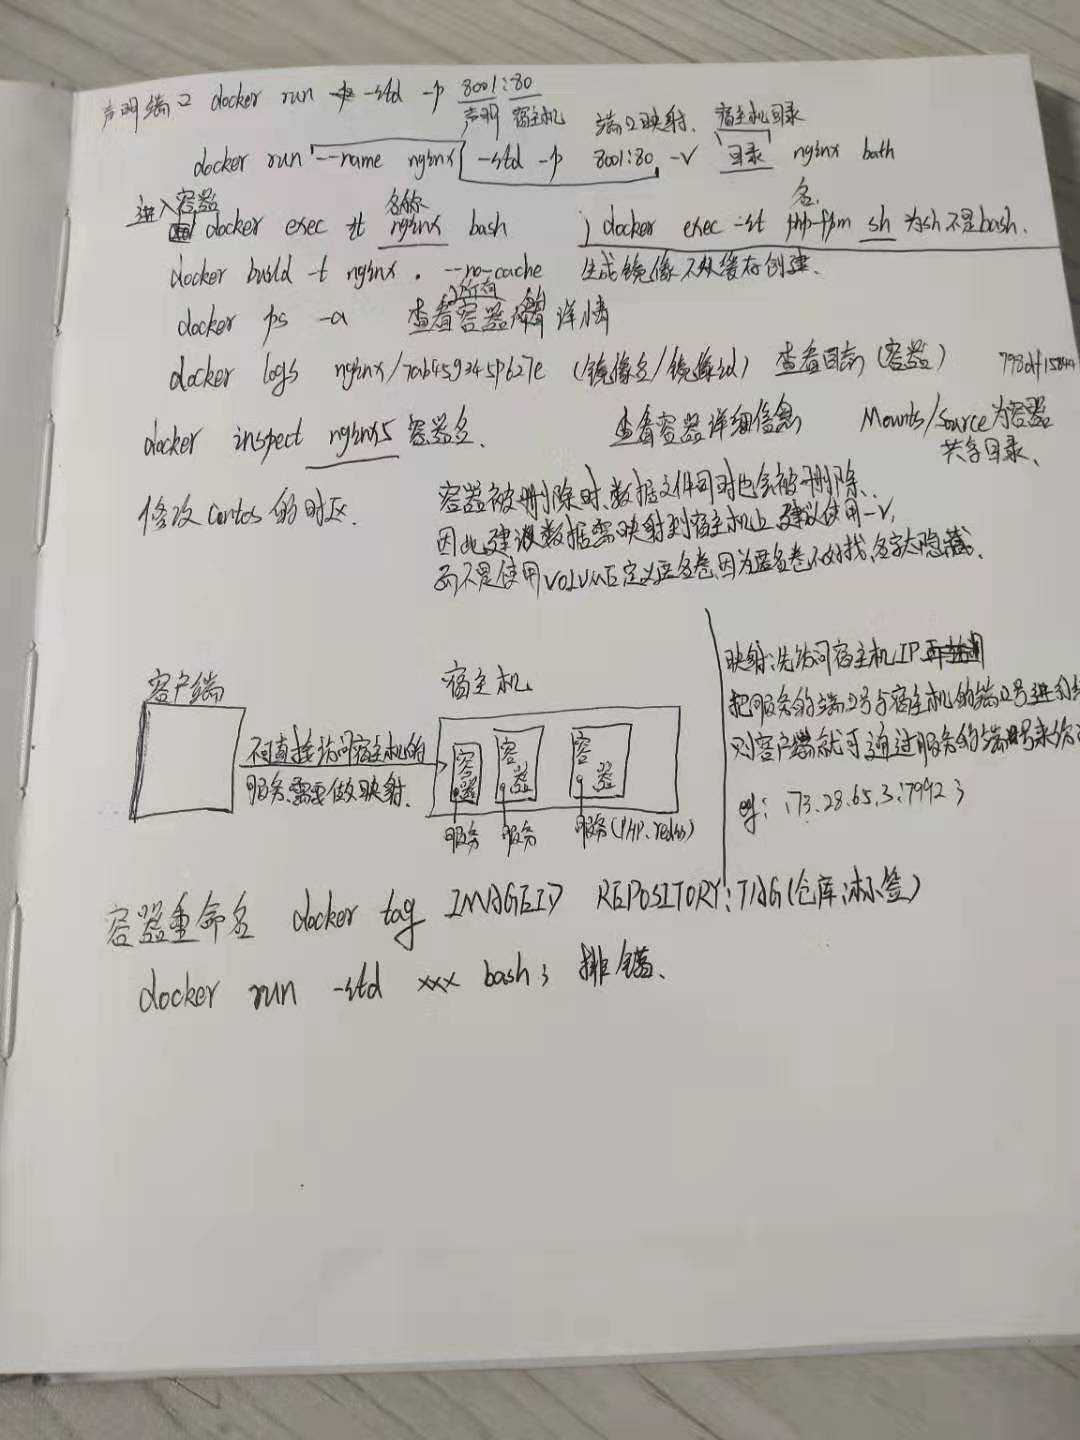 声明端口 docker run -itd -p 8001:80
声明 宿主机 端口映射. 宿主机目录
docker run --name nginx -itd -p 8001:80 -v 目录 nginx bath
进入容器 名称 名.
docker exec it nginx bash ; docker exec -it php-fpm sh 为sh不是bash.
docker build -t nginx . --no-cache 生成镜像不从缓存创建.
所有
docker ps -a 查看容器 详情
docker logs nginx/7ab459345p627e (镜像名/镜像id) 查看日志 (容器)
docker inspect nginx5 容器名. 查看容器详细信息 Mounts/Source为容器
共享目录.
修改Centos的时区. 容器被删除时、数据文件同时也会被删除.
因此建议数据需映射到宿主机上 建议使用-v,
而不是使用VOLUME定义匿名卷,因为匿名卷不好找,名字太隐藏.
映射:先访问宿主机IP
客户端 宿主机
把服务的端口号与宿主机的端口号进行
不可直接访问宿主机的 则客户端就可通过服务的端口号来
服务.需要做映射. 容器 容器 容器
例: 173.28.65.3:7992;
服务 服务 服务(PHP.redis)
容器重命名 docker tag IMAGEID REPOSITORY:TAG(仓库:标签)
docker run -itd xxx bash; 排错.